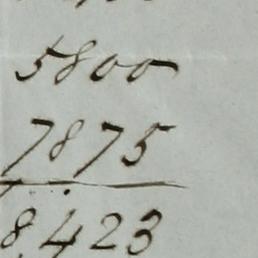 5800
7875
8,423